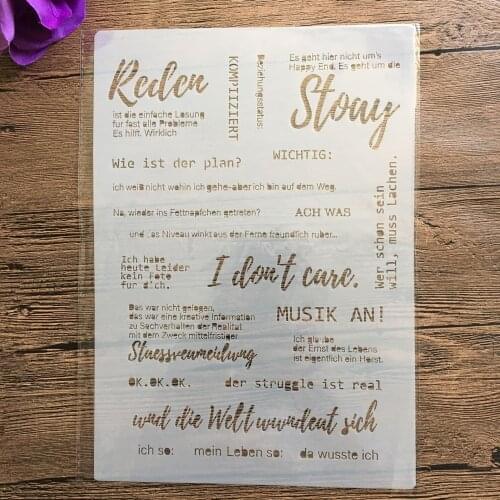 Reden
ist die einfache Losung
fur fast alle Probleme
Es hilft. Wirklich
KOMPIIZIERT
Beziehungsstatus:
Es geht hier nicht um's
Happy End. Es geht um die
Stoay
Wie ist der plan?
WICHTIG:
ich weiß nicht wohin ich gehe-aber ich bin auf dem Weg.
Na, wieder ins Fettnapfchen getreten?
ACH WAS
und das Niveau winkt aus der Ferne freundlich ruber...
Wer schon sein
will, muss Lachen.
Ich habe
heute Leider
kein Foto
fur dich.
I don't care.
Das war nicht gelogen,
das war eine kreative Information
zu Sachverhalten der Realitat
mit dem Zweck mittelfristiger
Staessveameidung
MUSIK AN!
Ich glaube
der Ernst des Lebens
ist eigentlich ein Horst.
OK.OK.OK.
der struggle ist real
und die Welt wundeat sich
ich so:
mein Leben so:
da wusste ich